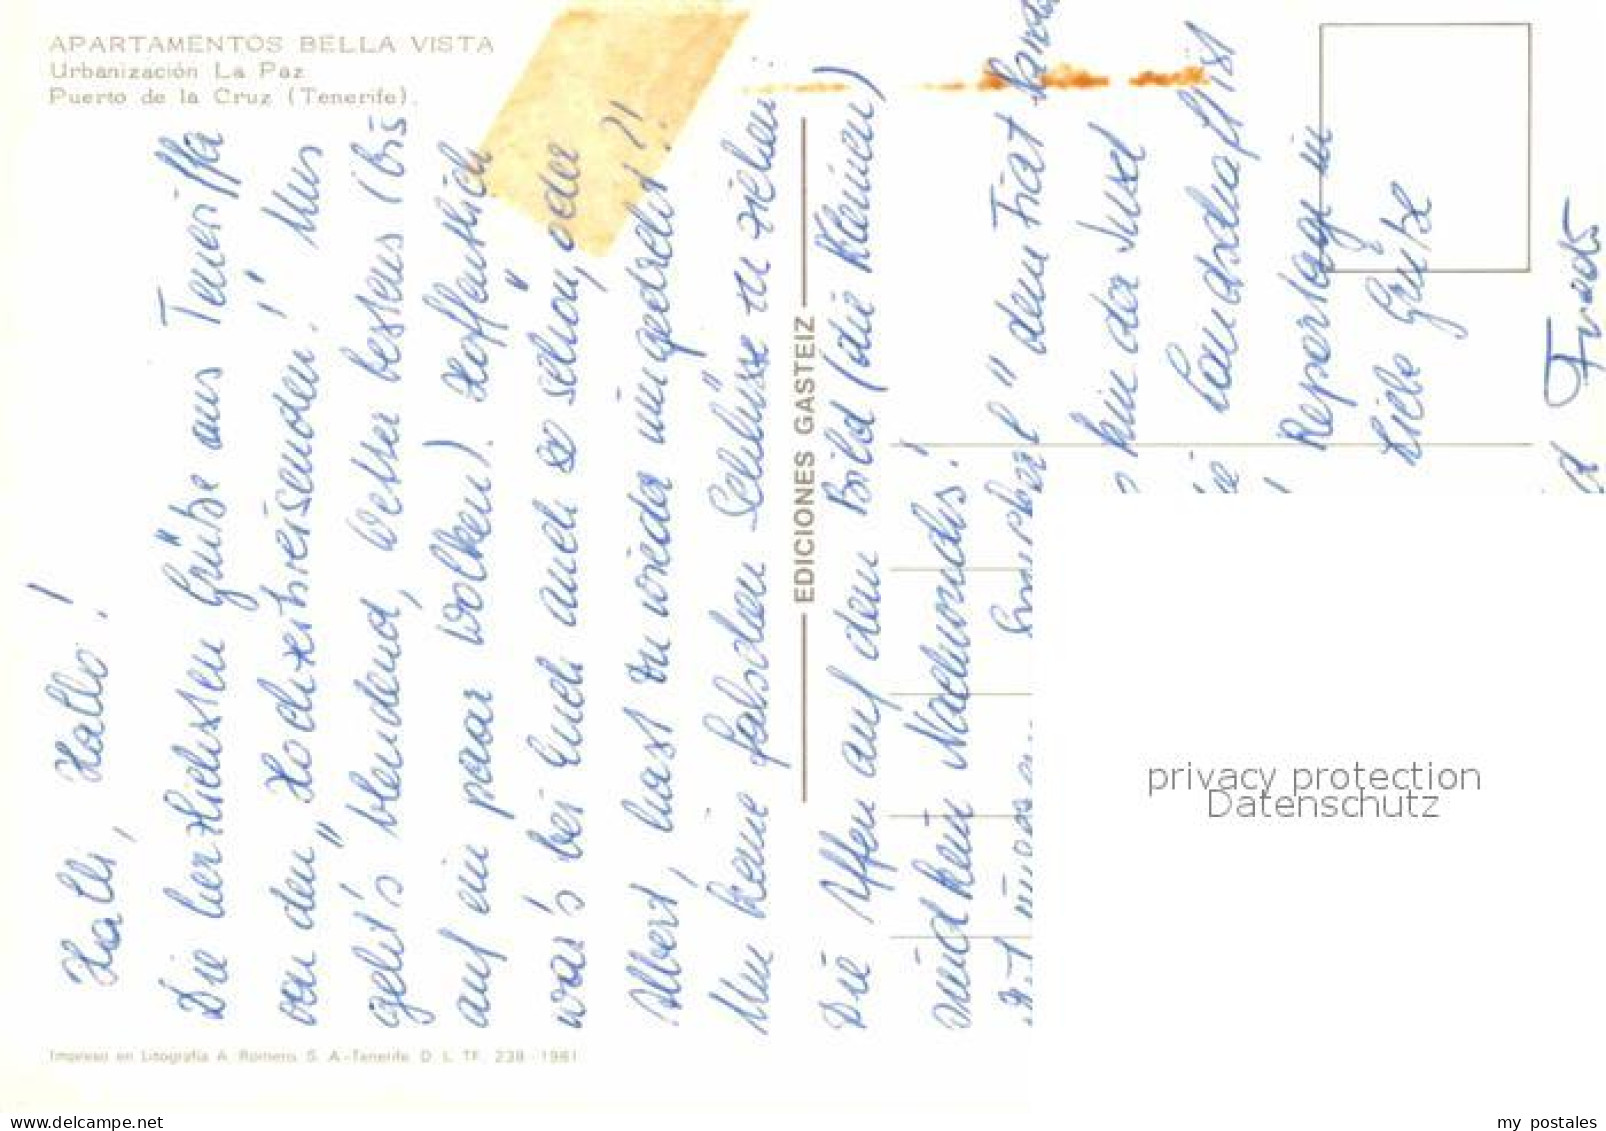 APARTAMENTOS BELLA VISTA
Urbanización La Paz
Puerto de la Cruz (Tenerife).
Halli, Hallo!
Die herzlichsten Grüße aus Teneriffa
von den "Hochzeitsreisenden"! Uns
geht's blendend, Wetter bestens (bis
auf ein paar Wolken). Hoffentlich
war's bei Euch auch so schön, oder
Albert, hast Du wieder umgedreht?!
Um keine falschen Schlüsse zu ziehen:
Die Affen auf dem Bild (die Kleinen)
sind kein Nachwuchs!
dem Fiat
hin der Insel
Landschaft ist
Reportage in
Liebe Grüße
EDICIONES GASTEIZ
Impreso en Litografía A. Romero, S. A.-Tenerife D. L. TF. 238 - 1981
privacy protection
Datenschutz
delcampe.net
my_postales